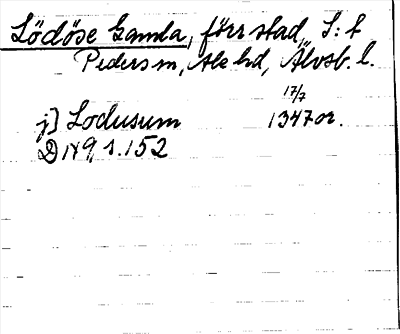 Lödöse Gamla, förr stad, S:t
Peders sn, Ale hd, Älvsb. l.
17/7
j) Lodusum 1347 or.
D 149, s. 152